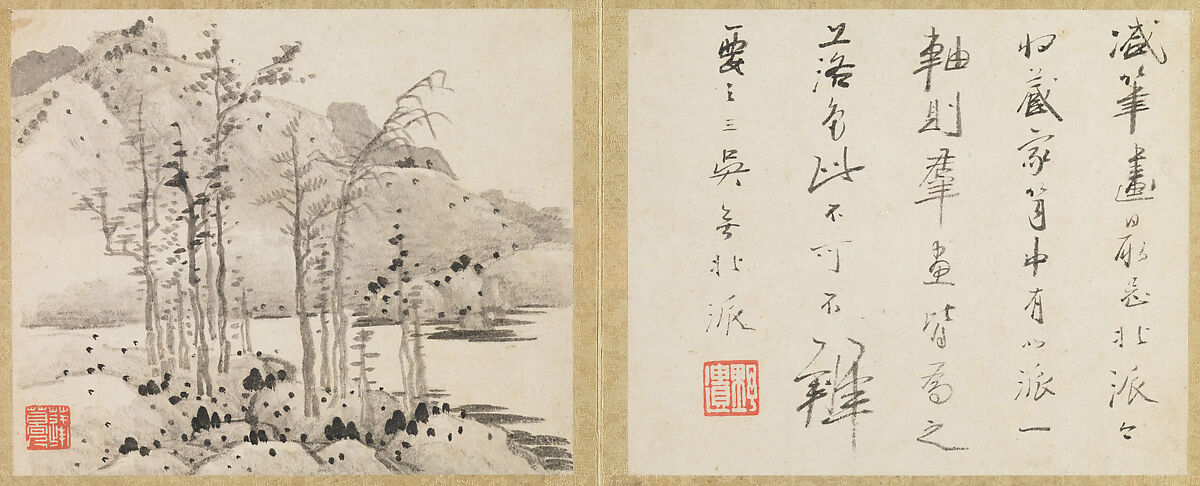 減筆畫最忌北派
收藏家笥中有此派一
軸則羣畫皆為之
落色此不可不辨
要之三吳無北派
野遺